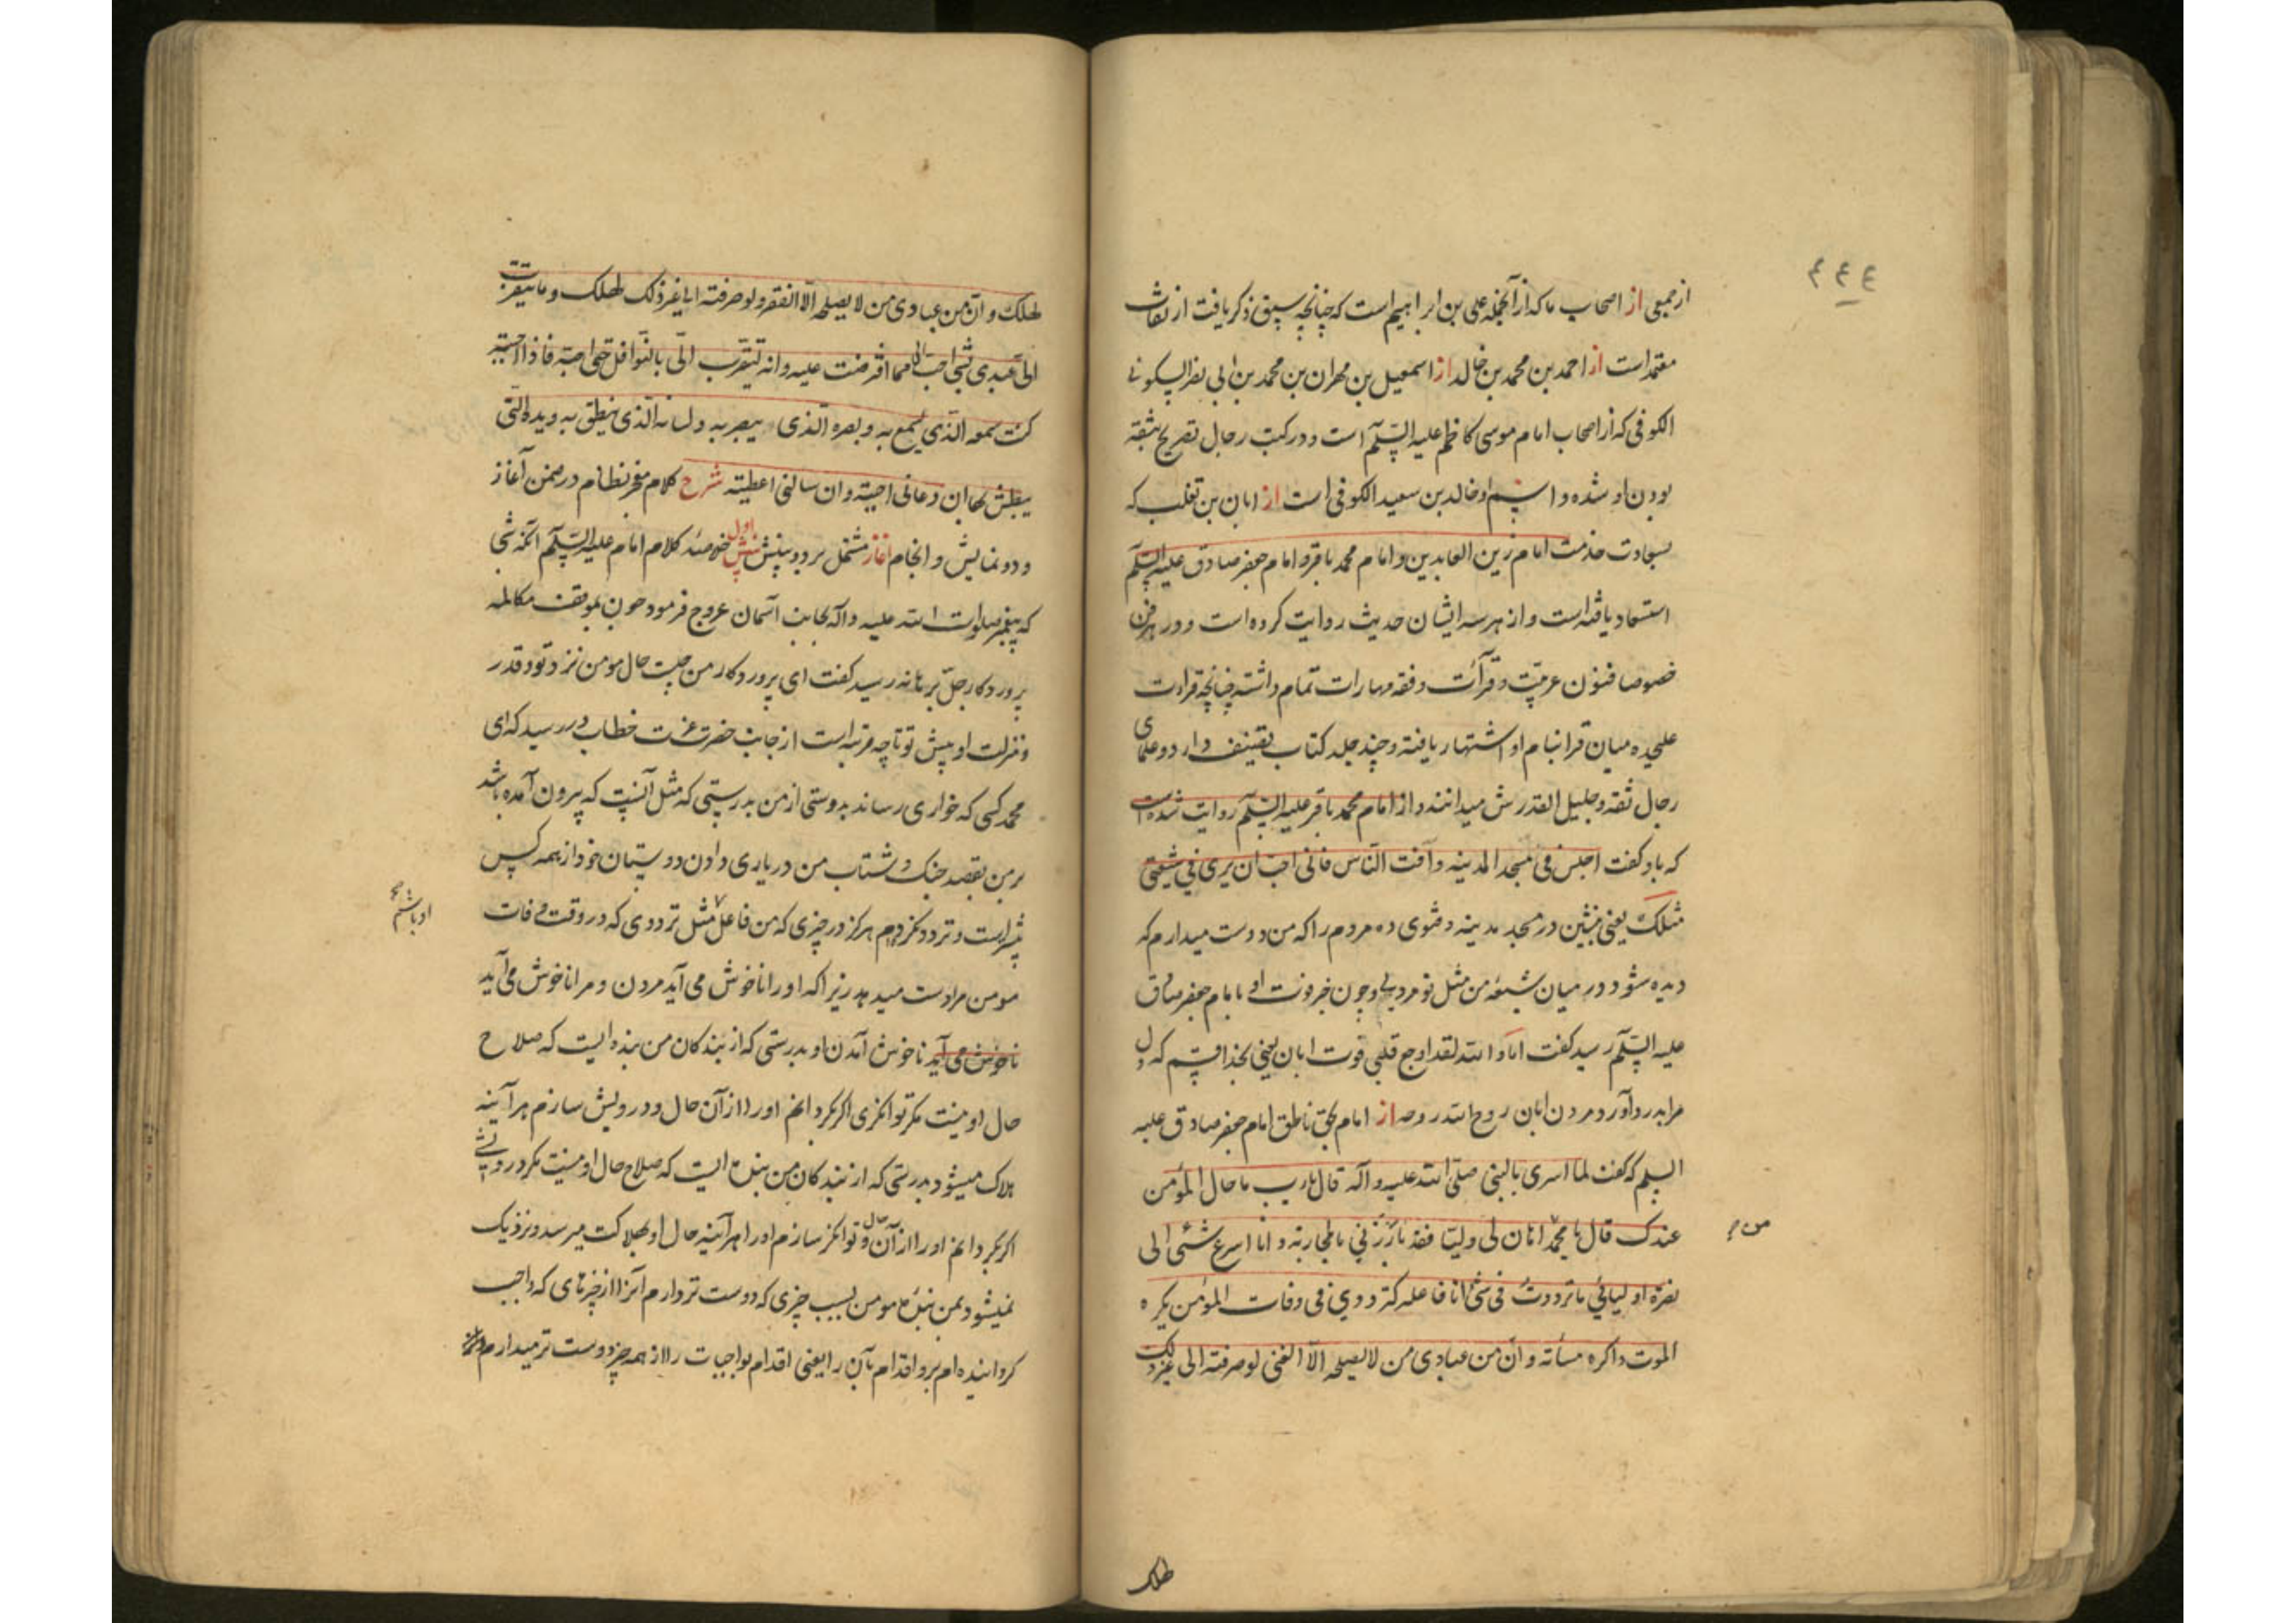 ۴۴۴
از جمعی از اصحاب ما که از آنجمله علی بن ابراهیم است که چنانچه سبق ذکر یافت از ثقات
معتمد است از احمد بن محمد بن خالد از اسمعیل بن مهران بن محمد بن ابی نصر السکونی
الکوفی که از اصحاب امام موسی کاظم علیه السّلم است و در کتب رجال تصریح بثقه
بودن او شده و اسم او خالد بن سعید الکوفی است از ابان بن تغلب که
بسعادت خدمت امام زین العابدین و امام محمد باقر و امام جعفر صادق علیه السّلم
استسعاد یافته است و از هر سه ایشان حدیث روایت کرده است و در هر فن
خصوصا فنون عربیّت و قرآئت و فقه مهارات تمام داشته چنانچه قراءت
علیحده میان قرا بنام او اشتهار یافته و چند جلد کتاب تصنیف دارد و علمای
رجال ثقه و جلیل القدرش میدانند و از امام محمد باقر علیه السّلم روایت شده است
که باو کفت اجلس فی مسجد المدینه و آفت النّاس فانی احبّ ان یری فی شیعتی
مثلک یعنی بنشین در مسجد مدینه و فتوی ده مردم را که من دوست میدارم که
دیده شود در میان شیعه من مثل تو مردی و چون خبر فوت او بامام جعفر صادق
علیه السّلم رسید کفت اما و الله لقد اوجع قلبی فوت ابان یعنی بخدا قسم که دل
مرا بدرد آورد مردن ابان روح الله روحه از امام بحق ناطق امام جعفر صادق علیه
السلم که کفت لما اسری بالنبی صلّی الله علیه و آله قال یا ربّ ما حال المؤمن
عندک قال یا محمّد انا من اهان لی ولیّا فقد بارَزَنی بالمحاربة و انا اسرع شئی الی
من
نصرة اولیائی ما تردّدتُ فی شئ انا فاعله کتردّدی فی وفات المؤمن یکره
الموت و اکره مسأته و انّ من عبادی من لا یصلحه الّا الغنی لو صرفته الی غیر ذلک
لهلک
لهلک و انّ من عبادی من لا یصلحه الّا الفقر و لو صرفته الی غیر ذلک لهلک و ما یتقرّب
الیّ عبدی بشئ احبّ الیّ مما افترضت علیه و انه لیتقرّب الیّ بالنّوافل حتّی احبّه فاذا احببته
کنت سمعه الّذی یسمع به و بصره الّذی یبصر به و لسانه الّذی ینطق به و یده الّتی
یبطش بها ان دعانی اجبته و ان سالنی اعطیته شرح کلام معجز نظام در ضمن آغاز
و دو نمایش و انجام آغاز مشتمل بر دو بینش بینش اول خلاصه کلام امام علیه السّلم آنکه شبی
که پیغمبر صلوات الله علیه و آله بجانب آسمان عروج فرمود چون بموقف مکالمه
پروردکار جلّ برهانه رسید کفت ای پروردکار من چیست حال مومن نزد تو و قدر
و منزلت او پیش تو تا چه مرتبه است از جانب حضرت عزّت خطاب در رسید که ای
محمد کسی که خواری رساند بدوستی از من بدرستی که مثل آنست که بیرون آمده باشد
بر من بقصد جنک و شتاب من در یاری دادن دوستان خود از همه کس
بیشتر است و تردد نکردم هرکز در چیزی که من فاعل مثل ترددی که در وقت وفات
او باشم صح
مومن مرا دست میدهد زیرا که او را ناخوش می آید مردن و مرا ناخوش می آید
ناخوش می آید ناخوش آمدن او بدرستی که از بندکان من بنده ایست که صلاح
حال او نیست مکر توانکری اکر بکردانم او را از آن حال و درویش سازم هر آئینه
هلاک میشود و بدرستی که از بندکان من بنده ایست که صلاح حال او نیست مکر درویشی
اکر بکردانم او را از آن حال و توانکر سازم او را هر آئینه حال او بهلاکت میرسد و نزدیک
نمیشود بمن بنده مومن بسبب چیزی که دوست تر دارم آنرا از چیزهای که واجب
کردانیده ام برو اقدام بآن را یعنی اقدام بواجبات را از همه چیز دوست تر میدارم